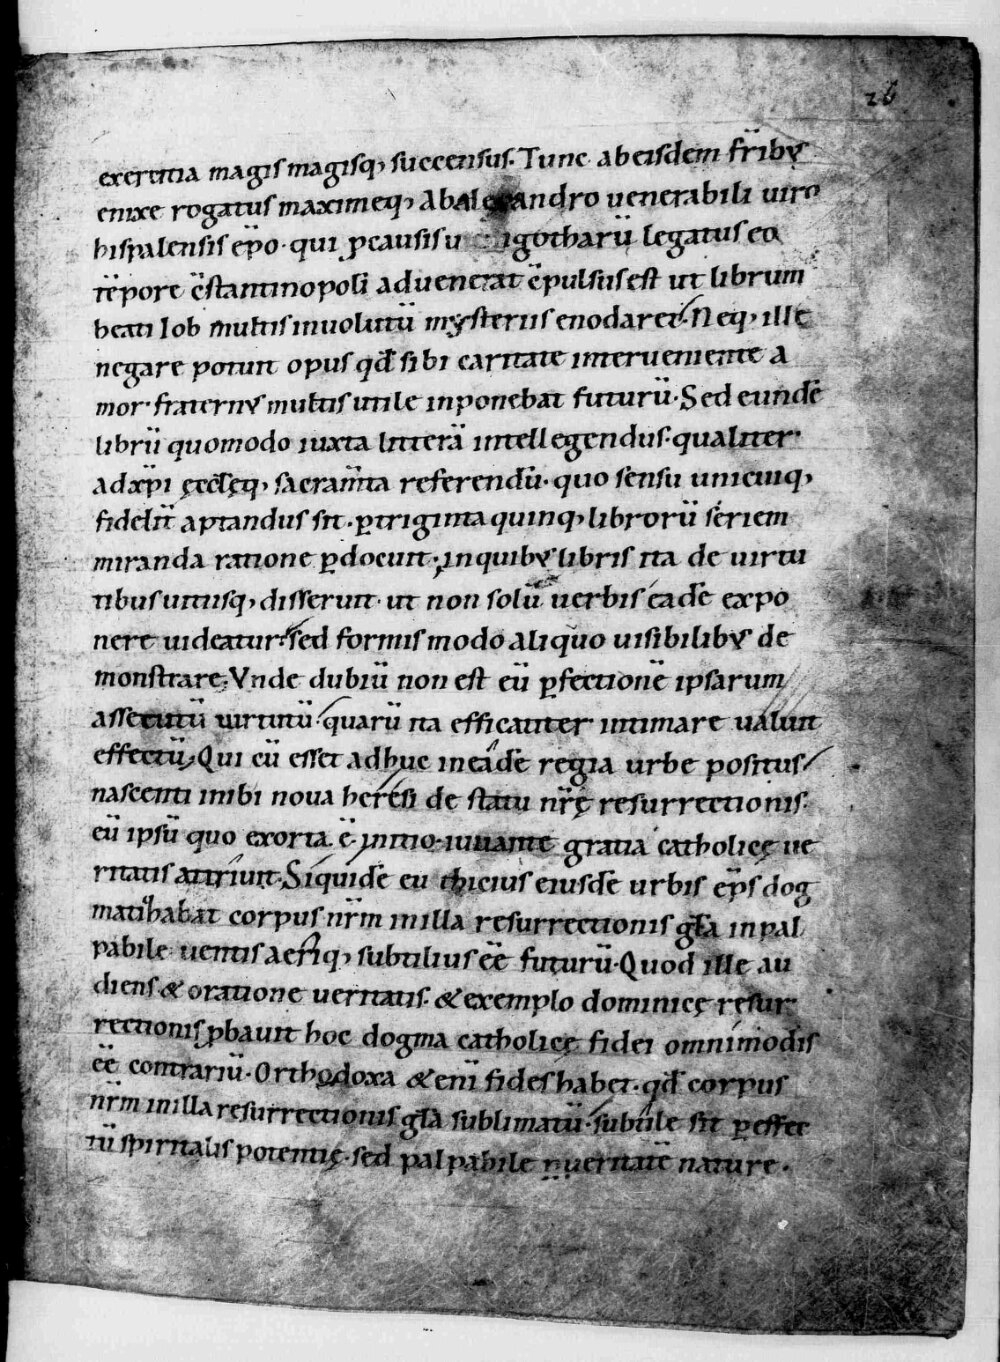 26
exercitia magis magisq, succensus. Tunc ab eisdem fr̄ib;
enixe rogatus maximeq, Abalexandro uenerabili uiro
hispalensis ep̄o. qui p causis u igotharū legatus eo
tēpore c̄stantinopolī aduenerat c̄pulsus est ut librum
beati Iob multis inuolutū mysteriis enodaret. Neq, ille
negare potuit opus qd̄ sibi caritate interueniente a
mor. fraternus multis utile inponebat futurū. Sed eundē
librū quomodo iuxta litterā intellegendus. qualiter
ad xp̄i ęccl̄ęq, sacram̄ta referend;. quo sensu unicuiq,
fideliū aptandus sit. p̱ triginta quinq, librorū seriem
miranda ratione p̱docuit. in quib; libris ita de uirtu
tibus utiusq, disseruit. ut non solū uerbis eadē expo
nere uideatur. sed formis modo aliquo uisibilib; de
monstrare; Vnde dubiū non est eū p̱fectionē ipsarum
assecutū uirtutū. quarū ita efficaciter intimare ualuit
effectū; Qui cū esset adhuc in eadē regia urbe positus
nascenti inibi noua heresi de statu nr̄ę resurrectionis.
cū ipsū quo exorta ē initio. iuuante gratia catholicę ue
ritatis attriuit. Siquidē eu thicius eiusdē urbis ep̄s dog
matihabat corpus nr̄m in illa resurrectionis gl̄a inpal
pabile uentis aeriq, subtilius eē futurū. Quod ille au
diens & oratione ueritatis. & exemplo dominicę resur
rectionis pbauit hoc dogma catholicę fidei omnimodis
eē contrariū. Orthodoxa &enī fides habet. qd̄ corpus
nr̄m in illa resurrectionis gl̄a sublimatū. subtile sit p̱ effec
tū spiritalis potentię. sed palpabile p ueritatē nature.